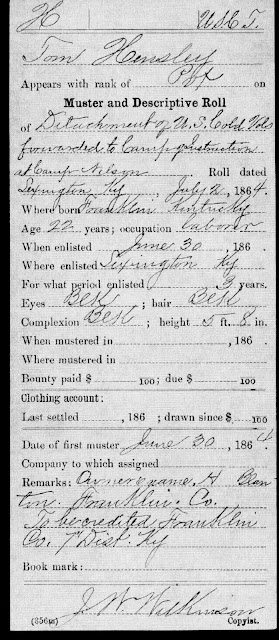 H U.S.C.T.
Tom Hensley
Appears with rank of Pvt on
Muster and Descriptive Roll
of Detachment of U.S. Cold Vols
forwarded to Camp of Instruction
at Camp Nelson Roll dated
Lexington Ky, July 2, 1864.
Where born Franklin Kentucky
Age 22 years; occupation Laborer
When enlisted June 30, 186
Where enlisted Lexington Ky
For what period enlisted 3 years.
Eyes Blk; hair Blk
Complexion Blk; height 5 ft. 8 in.
When mustered in , 186 .
Where mustered in
Bounty paid $ 100; due $ 100
Clothing account:
Last settled , 186 ; drawn since $ 100
Date of first muster June 30, 1864
Company to which assigned
Remarks: Owner's name, H Blan
ton. Franklin. Co.
To be credited Franklin
Co. 7" Dist. Ky
Book mark:
J W Wilkinson
(356m) Copyist.